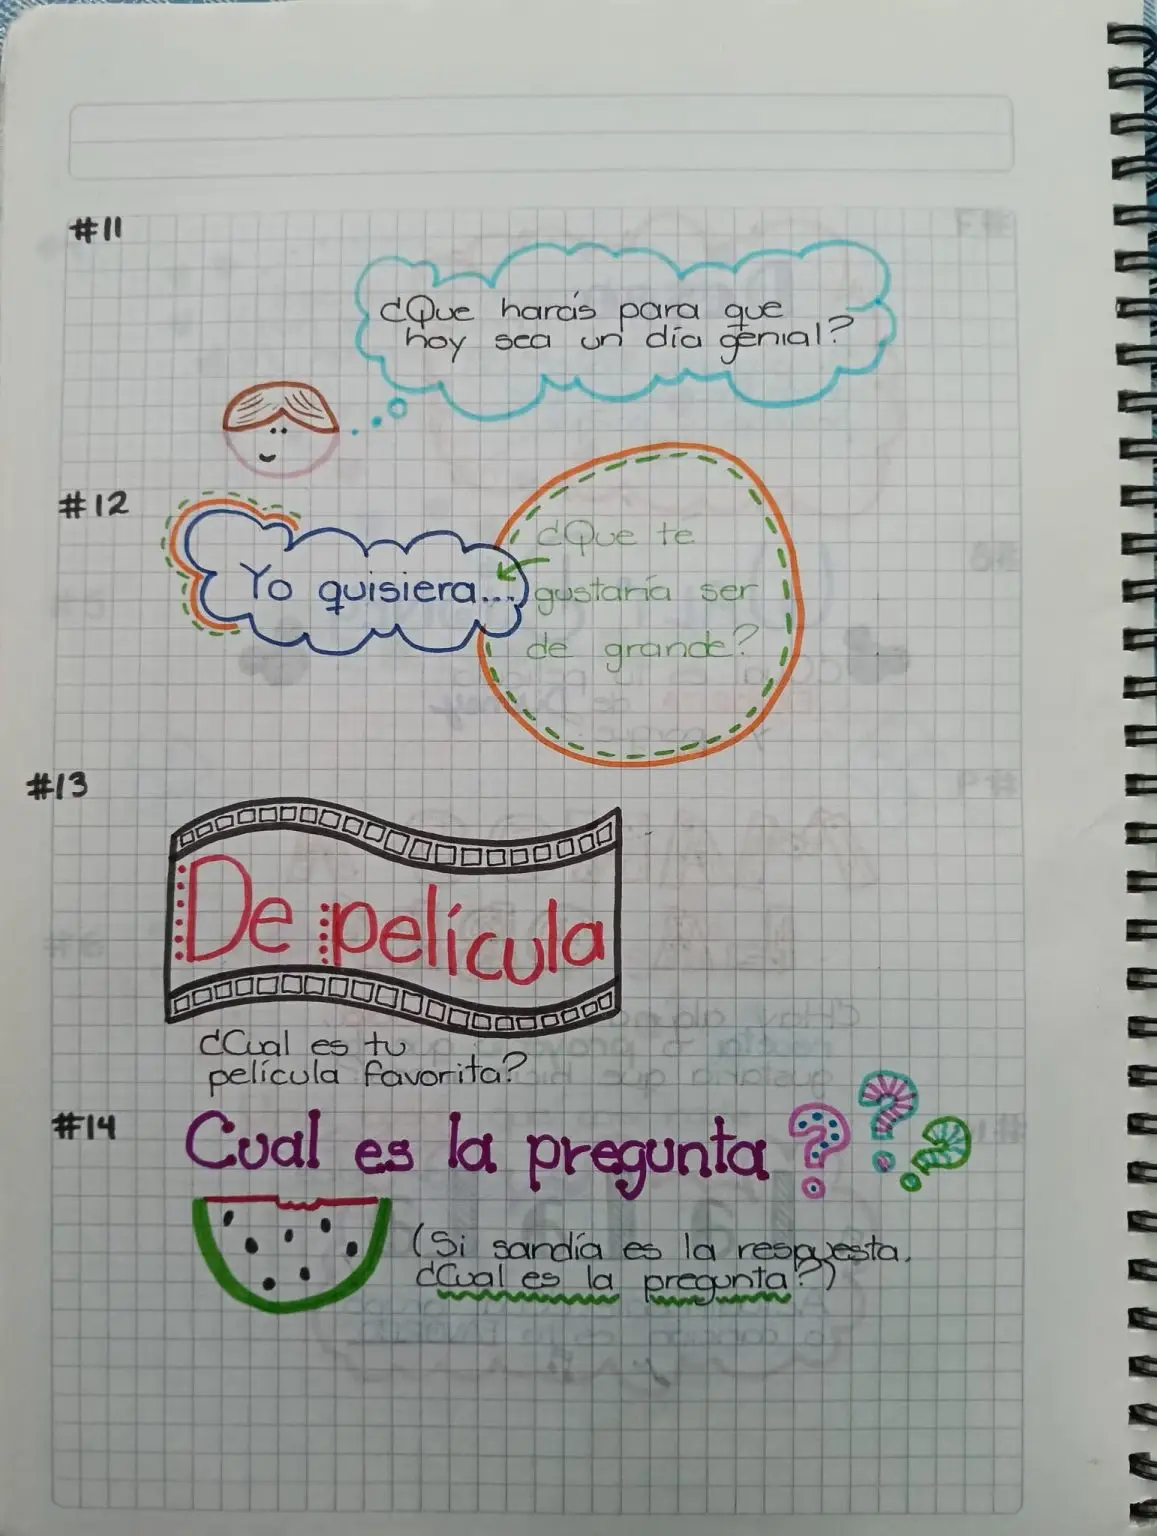 #11
¿Que harás para que
hoy sea un día genial?
#12
Yo quisiera...
¿Que te
gustaría ser
de grande?
#13
De película
¿Cual es tu
película favorita?
#14
Cual es la pregunta ???
(Si sandía es la respuesta.
¿Cual es la pregunta?)